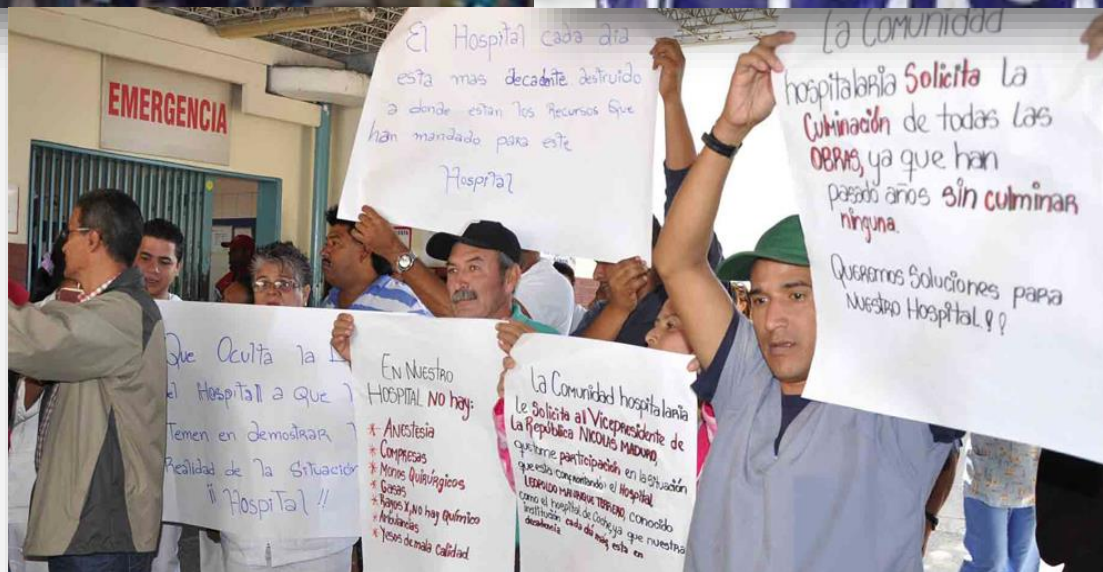 EMERGENCIA
El Hospital cada dia
esta mas decadente destruido
a donde estan los Recursos Que
han mandado para este
Hospital
La Comunidad
hospitalaria Solicita La
Culminación de todas Las
OBRAS, ya que han
pasado años sin culminar
ninguna.
Queremos Soluciones para
Nuestro Hospital.
Que Oculta la
el Hospital a Que
Temen en demostrar
Realidad de la Situación
¡¡ Hospital !!
En Nuestro
HOSPITAL NO hay:
* Anestesia
* Compresas
* Monos Quirúrgicos
* Gasas
* Rayos X, No hay Químico
* Ambulancias
* Yesos de mala Calidad
La Comunidad hospitalaria
Le Solicita al Vicepresidente de
La República NICOLÁS MADURO,
que tome participación en la situación
que esta confrontando el Hospital
LEOPOLDO MANRIQUE TERRERO, conocido
como el hospital de Coche, ya que nuestra
institución cada día más, esta en
decadencia